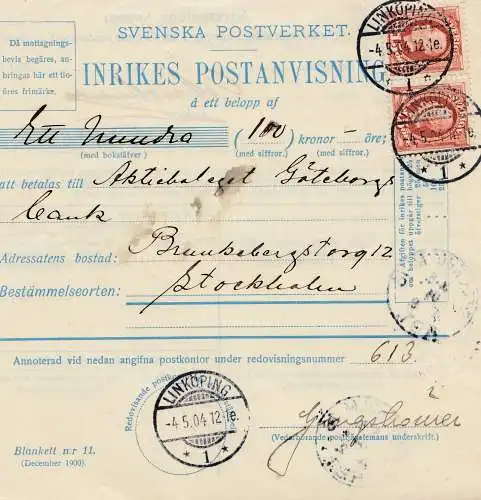 Då mottagnings-
bevis begäres, an-
bringas här ett tio-
öres frimärke.
SVENSKA POSTVERKET.
INRIKES POSTANVISNING,
å ett belopp af
Ett Hundra (100) kronor – öre;
(med bokstäfver) (med siffror.) (med siffror.)
att betalas till Aktiebolaget Göteborgs
bank
Adressatens bostad: Brunkebergstorg 12
Bestämmelseorten: Stockholm
Annoterad vid nedan angifna postkontor under redovisningsnummer 613.
Redovisande
(Vederbörande posttjänstemans underskrift.)
Blankett n:r 11.
(December 1900.)
LINKÖPING
-4.5.04.12-1e.
1
-4.5.
1
LINKÖPING
-4.5.04.12-1e.
1
Afgiften för inrikes postan-